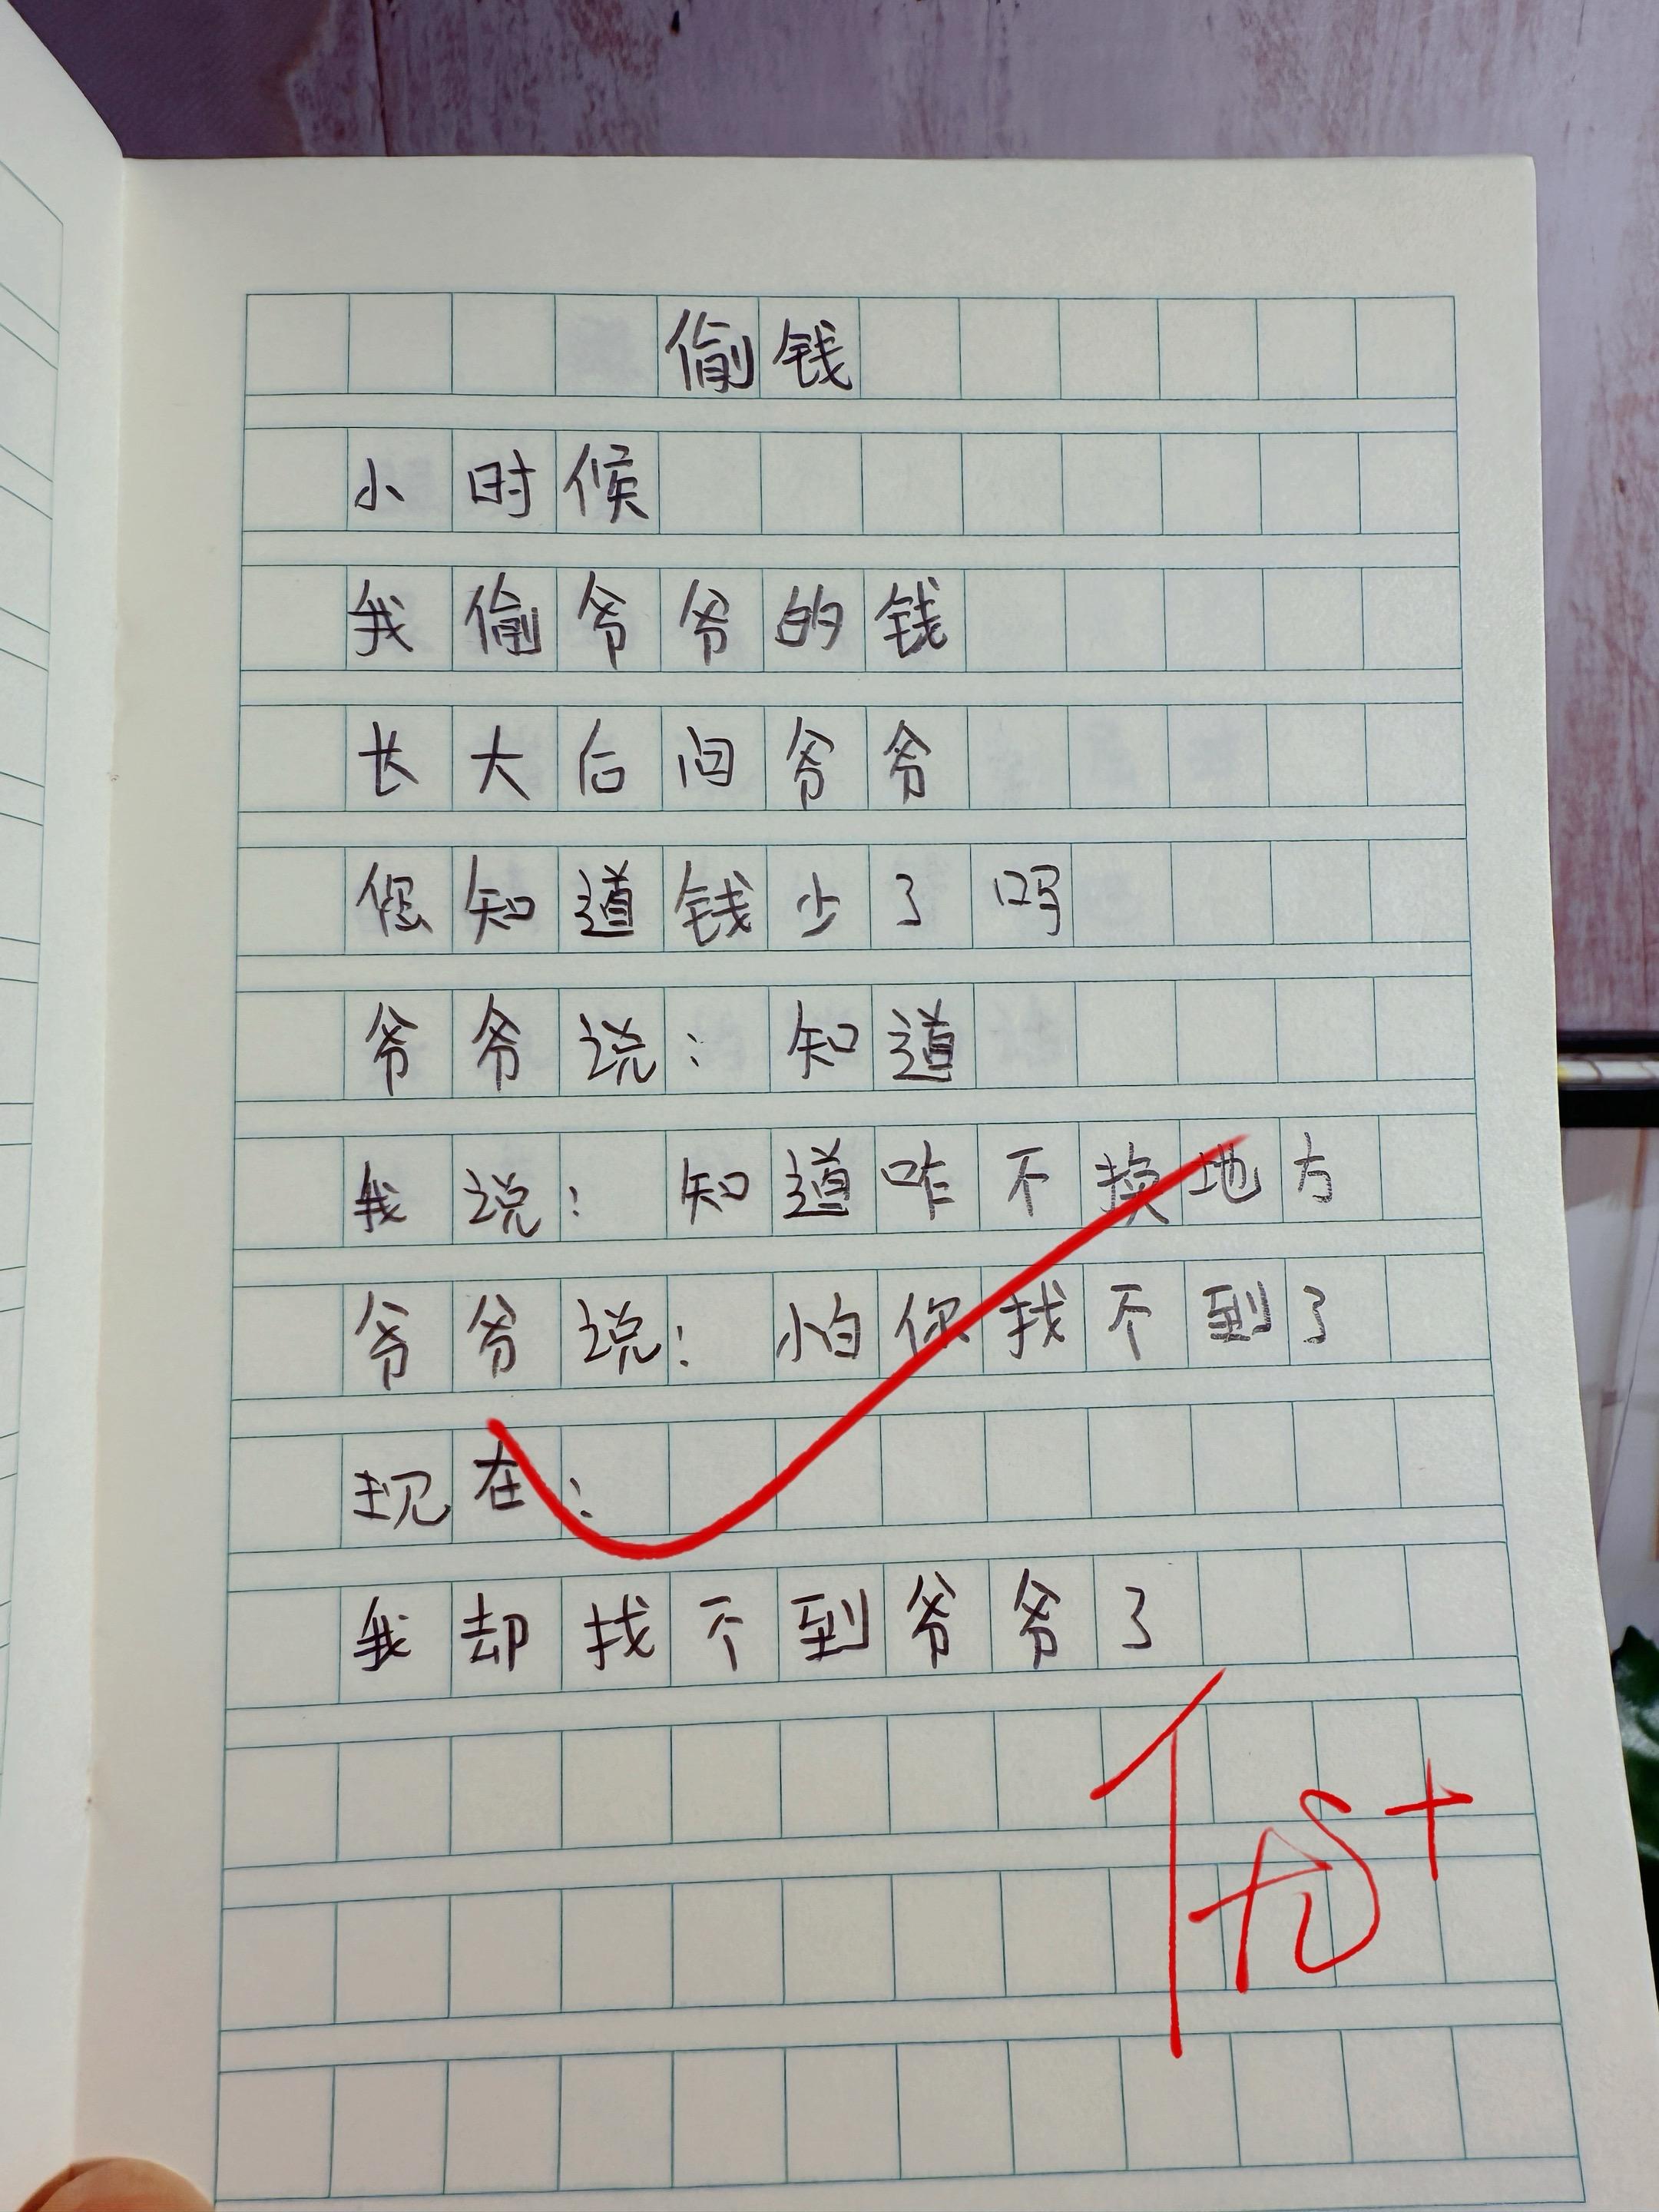 偷钱
小时候
我偷爷爷的钱
长大后问爷爷
您知道钱少了吗
爷爷说：知道
我说：知道咋不换地方
爷爷说：怕你找不到了
现在：
我却找不到爷爷了
优+